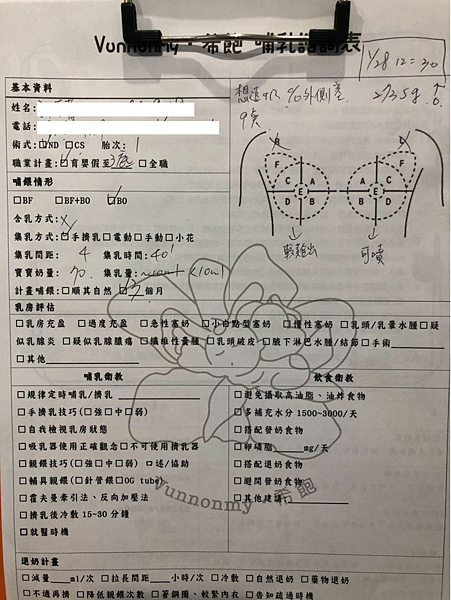 Vunnonmy·希飽 哺乳諮詢表
1/28 12:30
基本資料
姓名:
電話:
術式:☐ND ☐CS 胎次: 1
職業計畫:☑育嬰假至3底 ☐全職
外側塞
2735g
9點
哺餵情形
☐BF ☐BF+BO ☑BO
含乳方式: X
集乳方式:☑手擠乳☐電動☐手動☐小花
集乳間距: 4 集乳時間: 40'
寶寶奶量: 70 集乳量:
計畫哺餵:☐順其自然 ☑ 個月
F C A D E B
A C F B E D
較難出 可噴
乳房評估
☐乳房充盈 ☐過度充盈 ☐急性塞奶 ☐小白點型塞奶 ☐慢性塞奶 ☐乳頭/乳暈水腫☐疑
似乳腺炎 ☐疑似乳腺膿瘍 ☐纖維性囊腫 ☐乳頭破皮 ☐腋下淋巴水腫/結節☐手術
☐其他
哺乳衛教 飲食衛教
☐規律定時哺乳/擠乳
☐手擠乳技巧(☐強☐中☐弱)
☐自我檢視乳房狀態
☐吸乳器使用正確觀念☐不可使用擠乳器
☐親餵技巧(☐強☐中☐弱) 口述/協助
☐輔具親餵(☐針管餵☐OG tube)
☐霍夫曼牽引法、反向加壓法
☐擠乳後冷敷 15-30 分鐘
☐就醫時機
☐避免攝取高油脂、油炸食物
☐多補充水分 1500~3000/天
☐搭配發奶食物
☐卵磷脂 mg/天
☐搭配退奶食物
☐避開發奶食物
☐其他建議:
Vunnonmy 希飽
退奶計畫
☐減量 ml/次 ☐拉長間距 小時/次 ☐冷敷 ☐自然退奶 ☐藥物退奶
☐不過再擠 ☐降低親餵次數 ☐著鋼圈、較緊內衣 ☐告知疏通時機